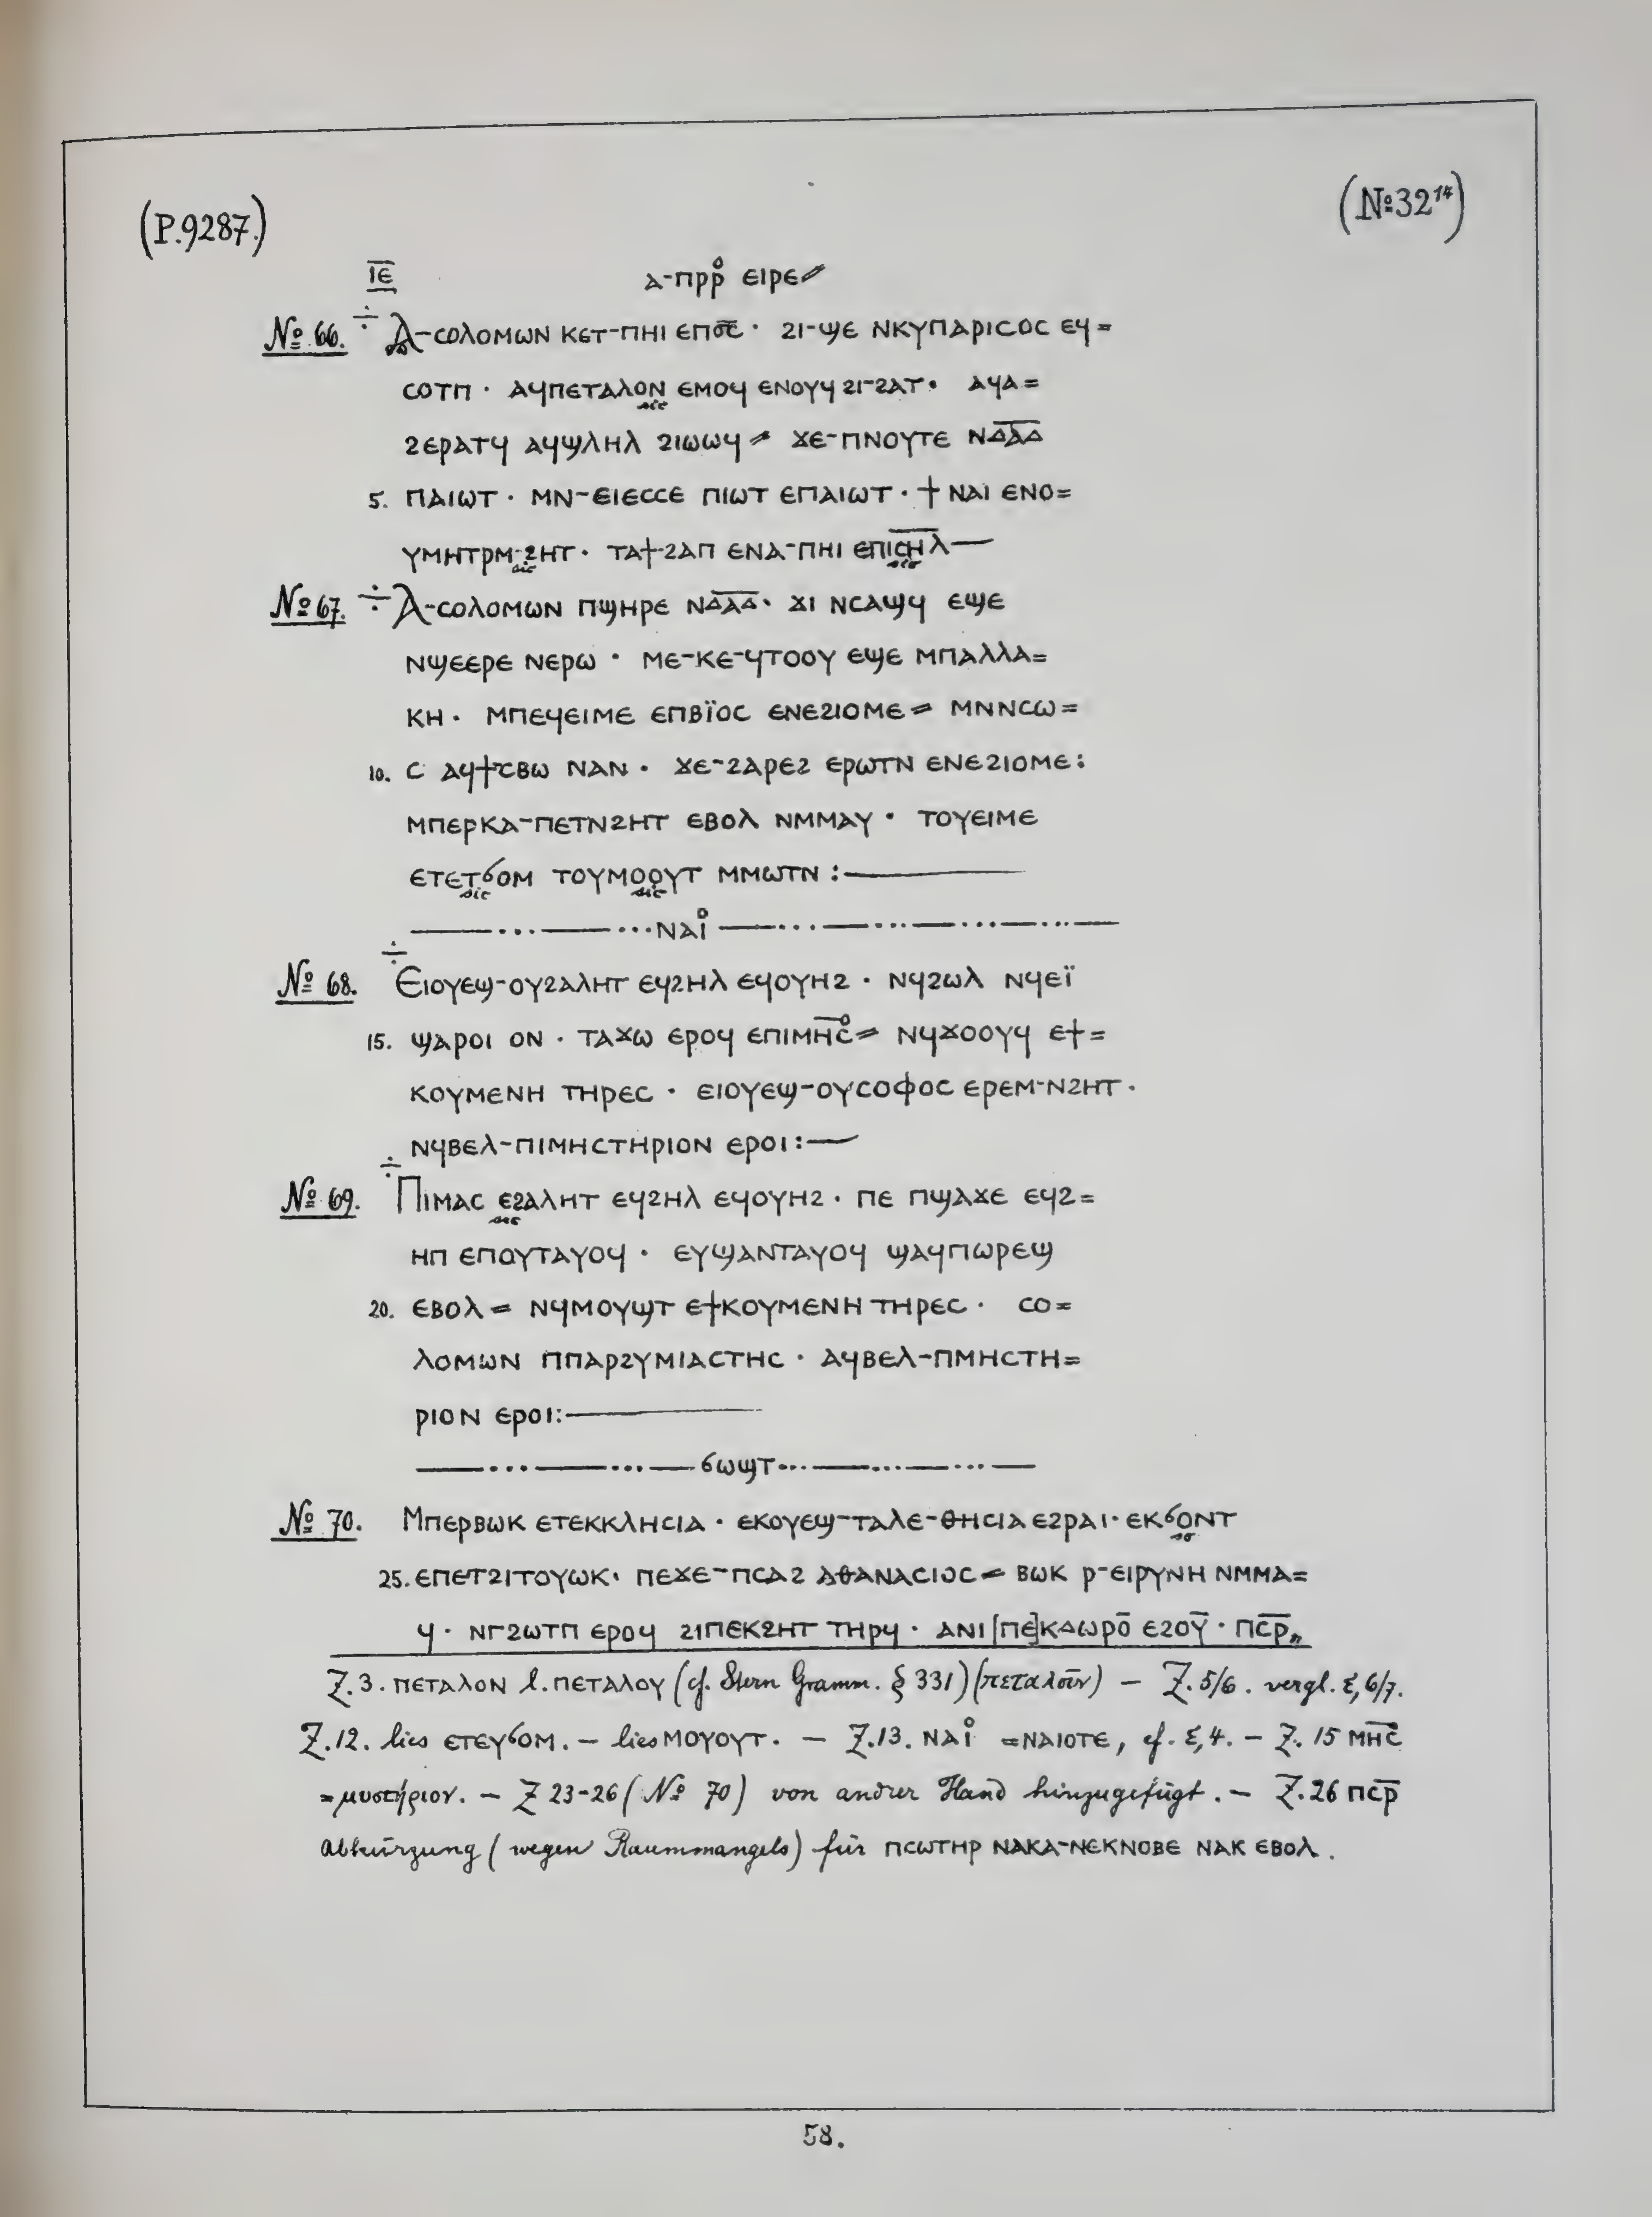 (P.9287.)
(№32¹⁴)
ⲓ̅ⲉ̅ ⲁ-ⲡⲣⲣ̊ ⲉⲓⲣⲉ⸗
№ 66. ÷ Ⲁ-ⲥⲟⲗⲟⲙⲱⲛ ⲕⲉⲧ-ⲡⲏⲓ ⲉⲡⲟ̅ⲥ̅ · ϩⲓ-ϣⲉ ⲛⲕⲩⲡⲁⲣⲓⲥⲟⲥ ⲉϥ=
ⲥⲟⲧⲡ · ⲁϥⲡⲉⲧⲁⲗⲟⲛ ⲉⲙⲟϥ ⲉⲛⲟⲩϥ ϩⲓ-ϩⲁⲧ · ⲁϥⲁ=
sic
ϩⲉⲣⲁⲧϥ ⲁϥϣⲗⲏⲗ ϩⲓⲱⲱϥ⸗ ϫⲉ-ⲡⲛⲟⲩⲧⲉ ⲛⲇ̅ⲁ̅ⲇ̅
5. ⲡⲁⲓⲱⲧ · ⲙⲛ-ⲉⲓⲉⲥⲥⲉ ⲡⲓⲱⲧ ⲉⲡⲁⲓⲱⲧ · ϯ ⲛⲁⲓ ⲉⲛⲟ=
ⲩⲙⲏⲧⲣⲙ-ϩⲏⲧ · ⲧⲁϯ-ϩⲁⲡ ⲉⲛⲁ-ⲡⲏⲓ ⲉⲡⲓ̅ⲥ̅ⲏ̅ⲗ—
sic sic
№ 67. ÷ Ⲁ-ⲥⲟⲗⲟⲙⲱⲛ ⲡϣⲏⲣⲉ ⲛⲇ̅ⲁ̅ⲇ̅ · ϫⲓ ⲛⲥⲁϣϥ ⲉϣⲉ
ⲛϣⲉⲉⲣⲉ ⲛⲉⲣⲱ · ⲙⲉ-ⲕⲉ-ϥⲧⲟⲟⲩ ⲉϣⲉ ⲙⲡⲁⲗⲗⲁ=
ⲕⲏ · ⲙⲡⲉϥⲉⲓⲙⲉ ⲉⲡⲃⲓ̈ⲟⲥ ⲉⲛⲉϩⲓⲟⲙⲉ⸗ ⲙⲛⲛⲥⲱ=
10. ⲥ ⲁϥϯⲥⲃⲱ ⲛⲁⲛ · ϫⲉ-ϩⲁⲣⲉϩ ⲉⲣⲱⲧⲛ ⲉⲛⲉϩⲓⲟⲙⲉ:
ⲙⲡⲉⲣⲕⲁ-ⲡⲉⲧⲛϩⲏⲧ ⲉⲃⲟⲗ ⲛⲙⲙⲁⲩ · ⲧⲟⲩⲉⲓⲙⲉ
ⲉⲧⲉⲧϭⲟⲙ ⲧⲟⲩⲙⲟⲟⲩⲧ ⲙⲙⲱⲧⲛ :———
sic sic
———···———···ⲛⲁⲓ̊———···———···———···———
№ 68. ÷ Ⲉⲓⲟⲩⲉϣ-ⲟⲩϩⲁⲗⲏⲧ ⲉϥϩⲏⲗ ⲉϥⲟⲩⲏϩ · ⲛϥϩⲱⲗ ⲛϥⲉⲓ̈
15. ϣⲁⲣⲟⲓ ⲟⲛ · ⲧⲁϫⲱ ⲉⲣⲟϥ ⲉⲡⲓⲙⲏ̅ⲥ̅̊⸗ ⲛϥϫⲟⲟⲩϥ ⲉϯ=
ⲕⲟⲩⲙⲉⲛⲏ ⲧⲏⲣⲉⲥ · ⲉⲓⲟⲩⲉϣ-ⲟⲩⲥⲟⲫⲟⲥ ⲉⲣⲉⲙ-ⲛϩⲏⲧ ·
ⲛϥⲃⲉⲗ-ⲡⲓⲙⲏⲥⲧⲏⲣⲓⲟⲛ ⲉⲣⲟⲓ:—
№ 69. ÷ Ⲡⲓⲙⲁⲥ ⲉϩⲁⲗⲏⲧ ⲉϥϩⲏⲗ ⲉϥⲟⲩⲏϩ · ⲡⲉ ⲡϣⲁϫⲉ ⲉϥϩ=
sic
ⲏⲡ ⲉⲡⲟⲩⲧⲁⲩⲟϥ · ⲉⲩϣⲁⲛⲧⲁⲩⲟϥ ϣⲁϥⲡⲱⲣⲉϣ
20. ⲉⲃⲟⲗ⸗ ⲛϥⲙⲟⲩϣⲧ ⲉϯⲕⲟⲩⲙⲉⲛⲏ ⲧⲏⲣⲉⲥ · ⲥⲟ=
ⲗⲟⲙⲱⲛ ⲡⲡⲁⲣϩⲩⲙⲓⲁⲥⲧⲏⲥ · ⲁϥⲃⲉⲗ-ⲡⲙⲏⲥⲧⲏ=
ⲣⲓⲟⲛ ⲉⲣⲟⲓ:———
———···———···———ϭⲱϣⲧ···———···———···———
№ 70. Ⲙⲡⲉⲣⲃⲱⲕ ⲉⲧⲉⲕⲕⲗⲏⲥⲓⲁ · ⲉⲕⲟⲩⲉϣ-ⲧⲁⲗⲉ-ⲑⲏⲥⲓⲁ ⲉϩⲣⲁⲓ · ⲉⲕϭⲟⲛⲧ
sic
25. ⲉⲡⲉⲧϩⲓⲧⲟⲩⲱⲕ · ⲡⲉϫⲉ-ⲡⲥⲁϩ ⲁⲑⲁⲛⲁⲥⲓⲟⲥ⸗ ⲃⲱⲕ ⲣ-ⲉⲓⲣⲩⲛⲏ ⲛⲙⲙⲁ=
ϥ · ⲛⲅϩⲱⲧⲡ ⲉⲣⲟϥ ϩⲓⲡⲉⲕϩⲏⲧ ⲧⲏⲣϥ · ⲁⲛⲓ[ⲡⲉ]ⲕⲇⲱⲣⲟ̅ ⲉϩⲟⲩ̅ · ⲡⲥ̅ⲣ̅〃
Z.3. ⲡⲉⲧⲁⲗⲟⲛ l. ⲡⲉⲧⲁⲗⲟⲩ (cf. Stern Gramm. § 331) (πεταλοῦν) — Z.5/6. vergl. ξ, 6/7.
Z.12. lies ⲉⲧⲉⲩϭⲟⲙ. — lies ⲙⲟⲩⲟⲩⲧ. — Z.13. ⲛⲁⲓ̊ =ⲛⲁⲓⲟⲧⲉ, cf. ξ, 4. — Z. 15 ⲙⲏ̅ⲥ̅
=μυστήριον. — Z 23-26 (№ 70) von andrer Hand hinzugefügt. — Z.26 ⲡⲥ̅ⲣ̅
Abkürzung (wegen Raummangels) für ⲡⲥⲱⲧⲏⲣ ⲛⲁⲕⲁ-ⲛⲉⲕⲛⲟⲃⲉ ⲛⲁⲕ ⲉⲃⲟⲗ.
58.